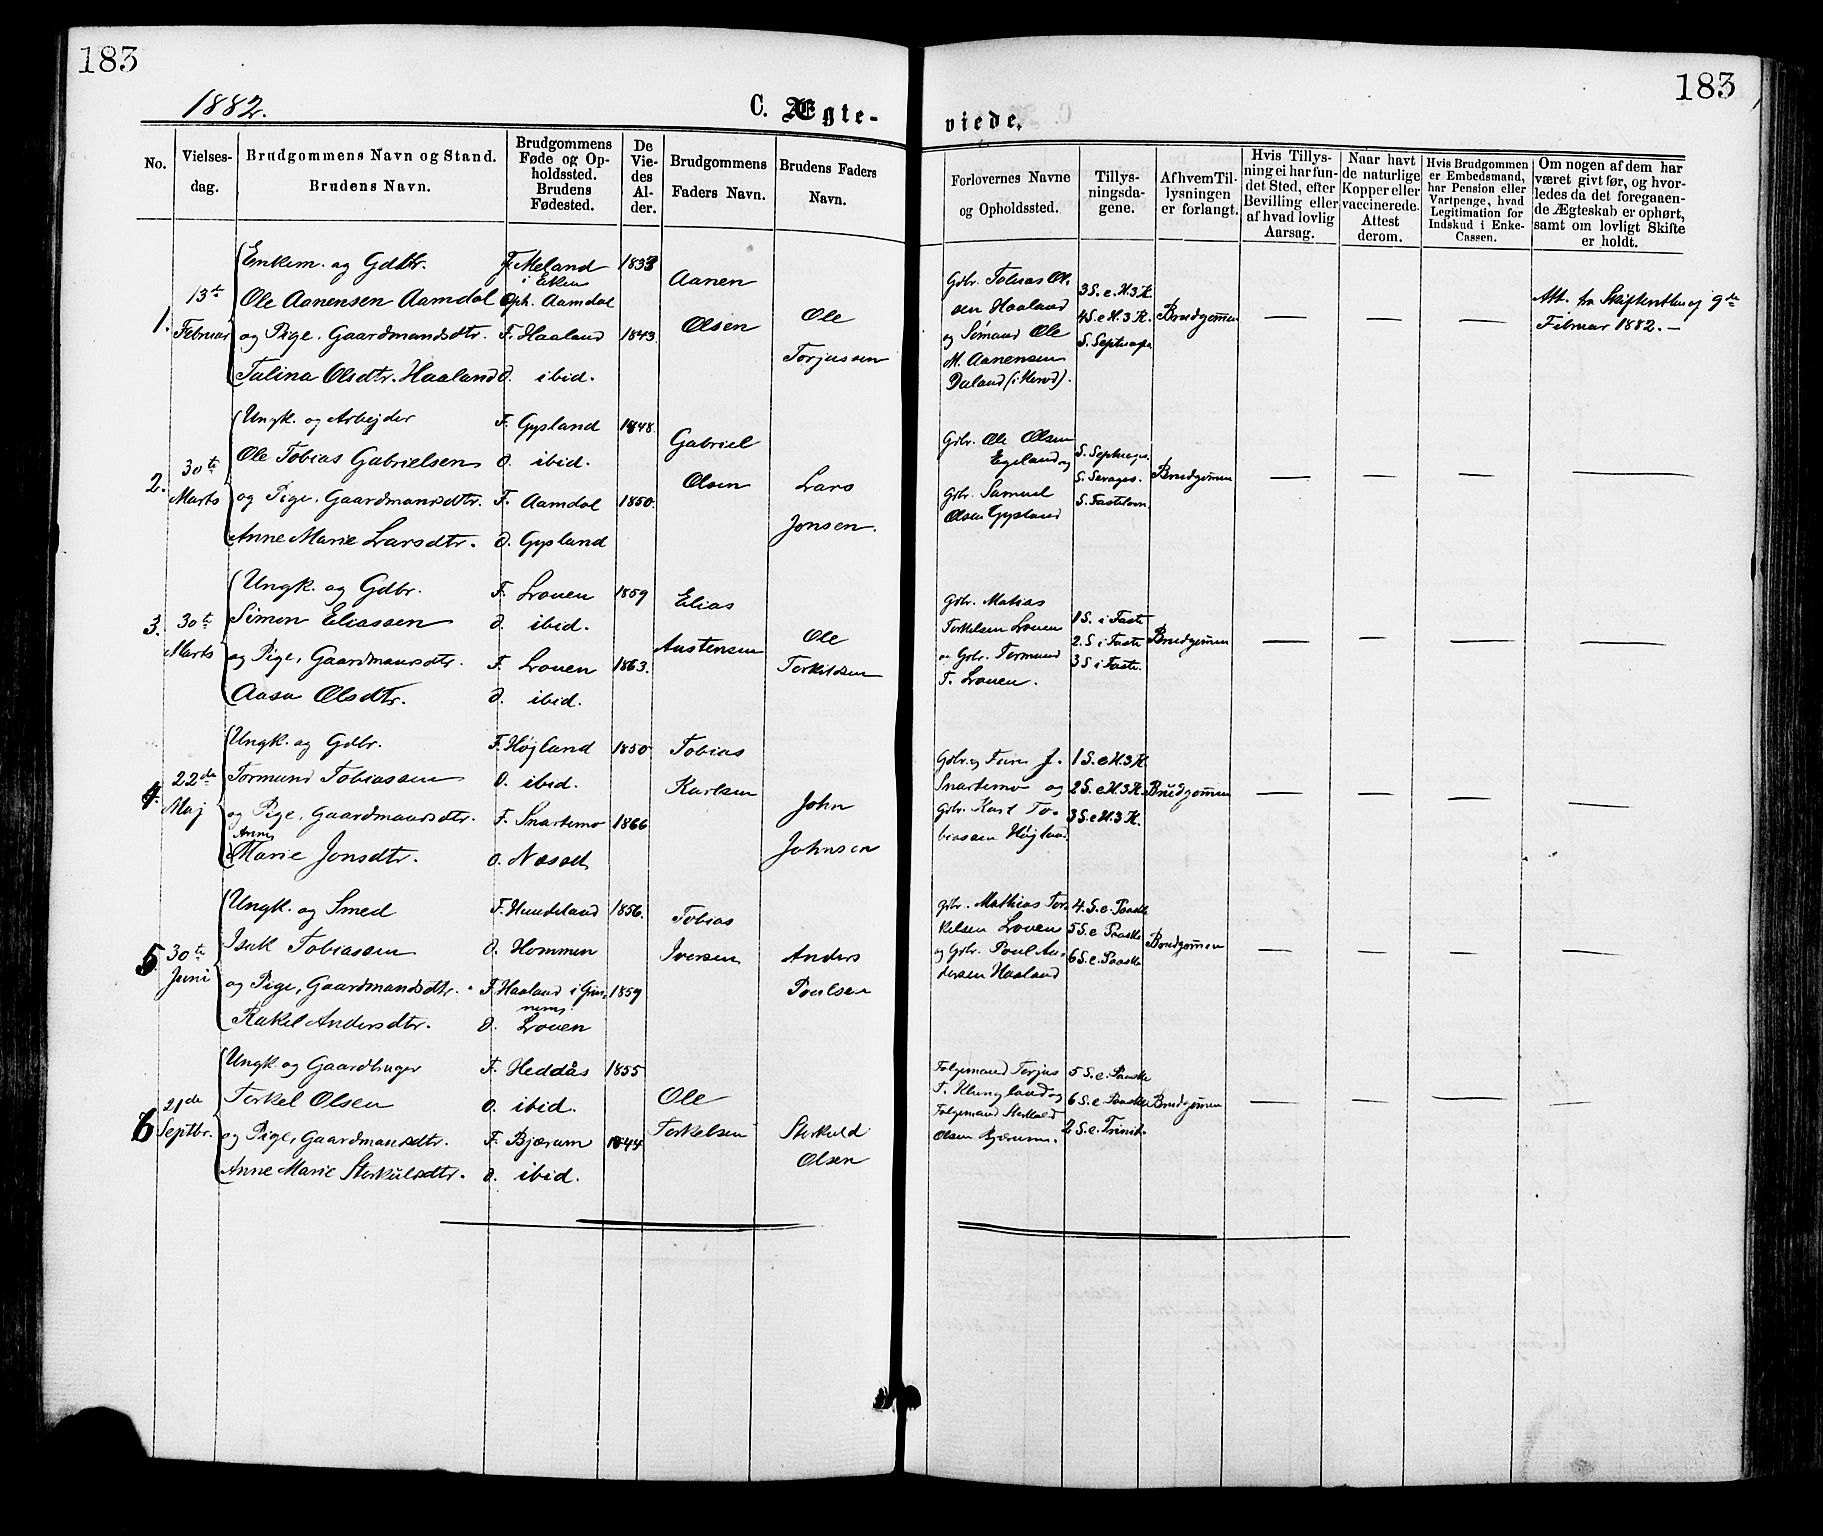 183
183
1882.
C. Ægte-
viede.
No.
Vielses-
dag.
Brudgommens Navn og Stand.
Brudens Navn.
Brudgommens
Føde og Op-
holdssted.
Brudens
Fødested.
De
Vie-
des
Al-
der.
Brudgommens
Faders Navn.
Brudens Faders
Navn.
Forlovernes Navne
og Opholdssted.
Tillys-
ningsda-
gene.
Af hvem Til-
lysningen
er forlangt.
Hvis Tillys-
ning ei har fun-
det Sted, efter
Bevilling eller
af hvad lovlig
Aarsag.
Naar havt
de naturlige
Kopper eller
vaccinerede.
Attest
derom.
Hvis Brudgommen
er Embedsmand,
har Pension eller
Vartpenge, hvad
Legitimation for
Indskud i Enke-
Cassen.
Om nogen af dem har
været givt før, og hvor-
ledes da det foregaaen-
de Ægteskab er ophørt,
samt om lovligt Skifte
er holdt.
1.
13te
Februar
Enkem. og Gdbr.
Ole Aanensen Aamdal
og Pige, Gaardmandsdtr.
Talina Olsdtr. Haaland
F. Meland
i Eken
Oph. Aamdal
F. Haaland
O. ibid.
1833
1843.
Aanen
Olsen
Ole
Torjussen
Gdbr. Tobias Ol-
sen Haaland
og Sömand Ole
M. Aanensen
Daland
3 S. e. H. 3 K.
4 S. e. H. 3 K.
S. Septuages.
Brudgommen
Att. fra Skifteretten af 9de
Februar 1882.-
2.
30te
Marts
Ungk. og Arbejder
Ole Tobias Gabrielsen
og Pige, Gaardmandsdtr.
Anne Marie Larsdtr.
F. Gysland
O. ibid.
F. Aamdal
O. Gysland
1848.
1850.
Gabriel
Olsen
Lars
Jonsen.
Gdbr. Ole Olsen
Egeland og
Gdbr. Samuel
Olsen Gysland
S. Septuages.
S. Sexages.
S. Fastelavn.
Brudgommen
3.
30te
Marts
Ungk. og Gdbr.
Simon Eliassen
og Pige, Gaardmandsdtr.
Aasa Olsdtr.
F. Lauen
O. ibid.
F. Lauen
O. ibid.
1859
1863.
Elias
Austensen
Ole
Torkildsen
Gdbr. Matias
Torkelsen Lauen
og Gdbr. Tormund
T. Lauen.
1 S. i Faste
2. S i Faste
3 S i Faste.
Brudgommen
4.
22de
Maj
Ungk. og Gdbr.
Tormund Tobiassen
og Pige, Gaardmandsdtr.
Anne
Marie Jonsdtr.
F. Højland
O. ibid.
F. Snartemo
O. Næset
1850
1866
Tobias
Karlsen
John
Johnsen
Gdbr. J.
Snartemo og
Gdbr. Karl To-
biassen Højland
1 S. e H. 3 K.
2 S. e H. 3 K.
3 S. e H. 3 K.
Brudgommen
5
30te
Juni
Ungk. og Smed
Isak Tobiassen
og Pige, Gaardmandsdtr.
Rakel Andersdtr.
F. Hundeland
O. Hommen
F. Haaland i Grin-
nem
O. Lauen
1856.
1859
Tobias
Iversen
Anders
Poulsen
Gdbr. Mathias Tor-
kelsen Lauen
og Gdbr. Poul An-
dersen Haaland
4. S. e. Paaske
5 S. e Paaske
6 S. e. Paaske
Brudgommen
6
21de
Septbr.
Ungk. og Gaardbruger
Torkel Olsen
og Pige, Gaardmandsdtr.
Anne Marie Storkulsdtr.
F. Heddås
O. ibid.
F. Bjærum
O. ibid.
1855
1844
Ole
Torkelsen
Storkuld
Olsen
Følgemand Terjus
T. Klungland og
Følgemand Storkuld
Olsen Bjærum.
5 S. e. Paaske
6 S. e. Paaske
2 S. e. Trinit.
Brudgommen